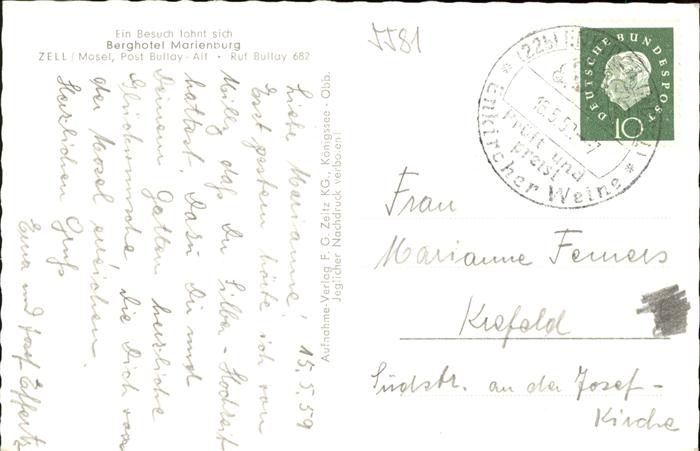 Ein Besuch lohnt sich
Berghotel Marienburg
ZELL/Mosel, Post Bullay-Alf • Ruf Bullay 682
15.5.59
Liebe Marianne!
Erst gestern hörte ich von
Milly daß Du Silber-Hochzeit
hattest. Dazu Dir und
Deinem Gatten herzliche
Glückwünsche die Dich von
der Mosel erreichen.
Herzlichen Gruß
Erna und Josef Effertz
Aufnahme-Verlag F. G. Zeitz KG., Königssee-Obb.
Jeglicher Nachdruck verboten!
5581
(22b)
15.5.59
Enkircher Weine
prüft und
preist
DEUTSCHE BUNDESPOST
10
Frau
Marianne
Krefeld
Südstr. an der Josef-
Kirche